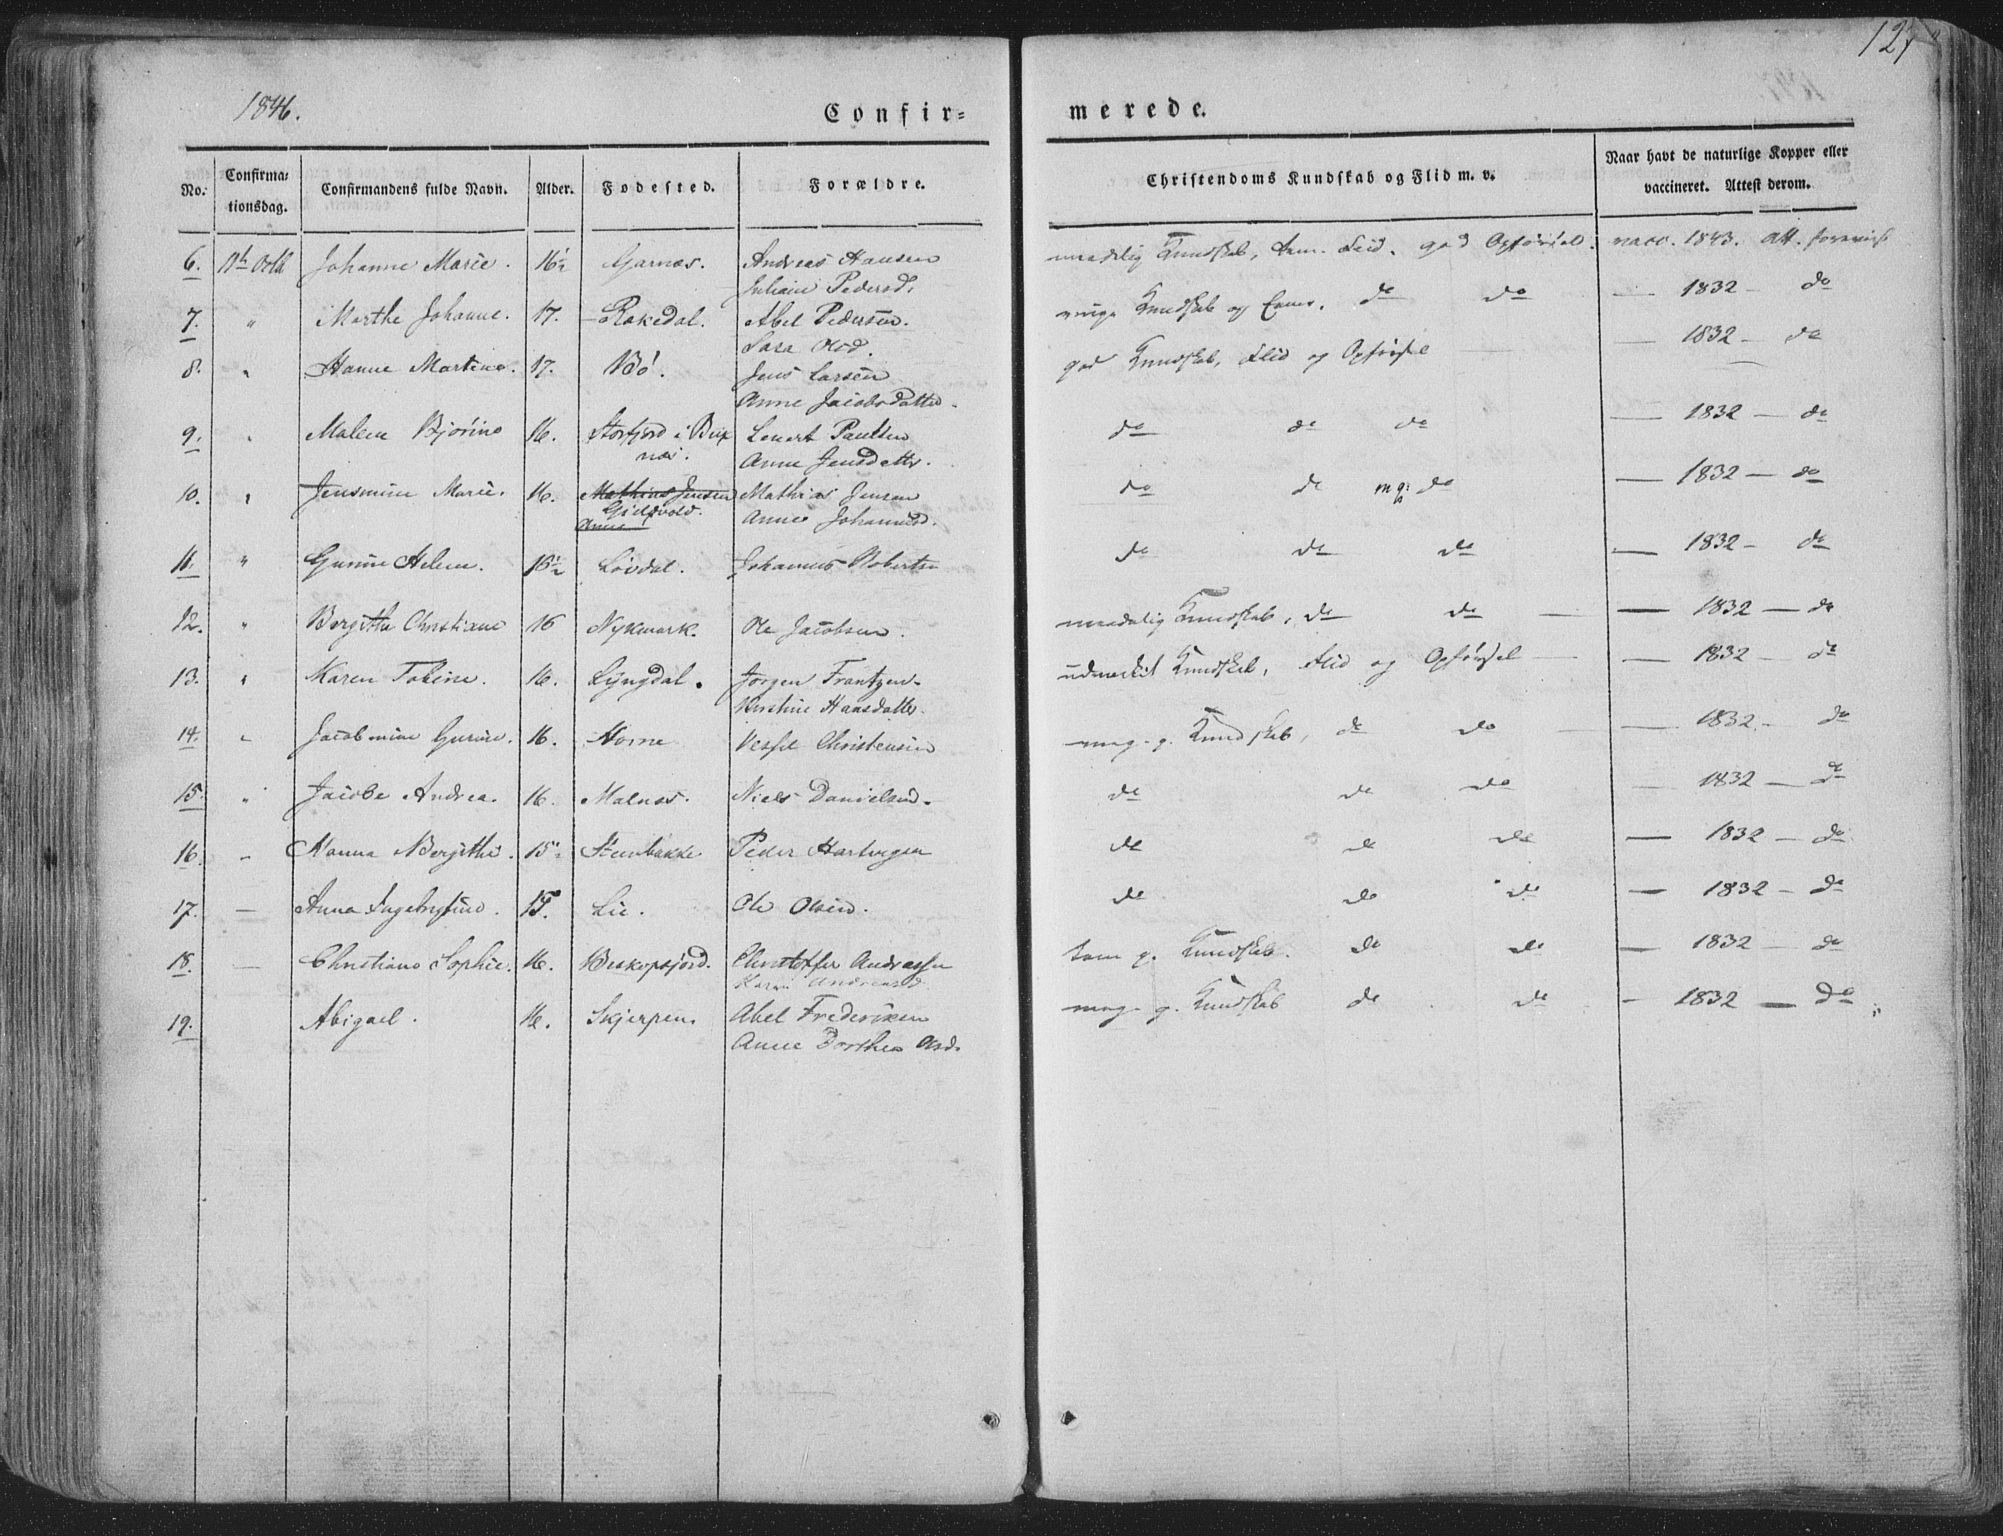 127
1846.
Confir=
merede.
No.
Confirma=
tionsdag.
Confirmandens fulde Navn.
Alder.
Fødested.
Forældre.
Christendoms Kundskab og Flid m. v.
Naar havt de naturlige Kopper eller
vaccineret. Attest derom.
6. 11te Johanne Marie. 16½ Garnæs. Andreas Hansen maadelig Kundskab, Flid. god Opførsel. vacc. 1843. att.
Pedersd.
7. " Marthe Johanne. 17. Rakedal. Abel Pedersen. Kundskab og do do — 1832 — do
Sara Olsd.
8. " Hanne Martine. 17. Bö. Jens Larsen god Kundskab, Flid og Opførsel — 1832 — do
Anne Jacobsdatter.
9. " Malene 16. Storfjord i Lenert Paulsen do do do — 1832 — do
næs. Anne Jensdatter.
10. " Jensmine Marie. 16. Mathias Jensen Mathias Jensen do do mg: do — 1832 — do
Anne Anne Johannesd.
11. " Gurine Helene. 16½ Løvdal. Johannes Robertsen do do do — 1832 — do
12. " Bergitha Christiane 16 Nykmark. Ole Jacobsen. maadelig Kundskab, do do — 1832 — do
13. " Karen Tobine. 16. Lyngdal. Jørgen Frantzen. udmerket Kundskab, Flid og Opførsel — 1832 — do
Kirstine Hansdatter.
14. " Jacobmine Gurine. 16. Horne Christensen meg. g. Kundskab, do do — 1832 — do
15. " Jacobe Andrea. 16. Malnæs. Niels Danielsen. do do do — 1832 — do
16. " Hanna Bergithe. 15½ Steenbakke Peder Hartvigsen do do do — 1832 — do
17. — Anna 15. Lie. Ole Olsen. do do do — 1832 — do
18. — Christiane Sophie. 16. Beskopsjord. Christoffer Andreassen tem. g. Kundskab. do do — 1832 — do
Andreasd.
19. Abigael. 16. Skjerpen. Abel Frederiksen meg. g. Kundskab do do — 1832 — do
Anne Dorthea Olsd.